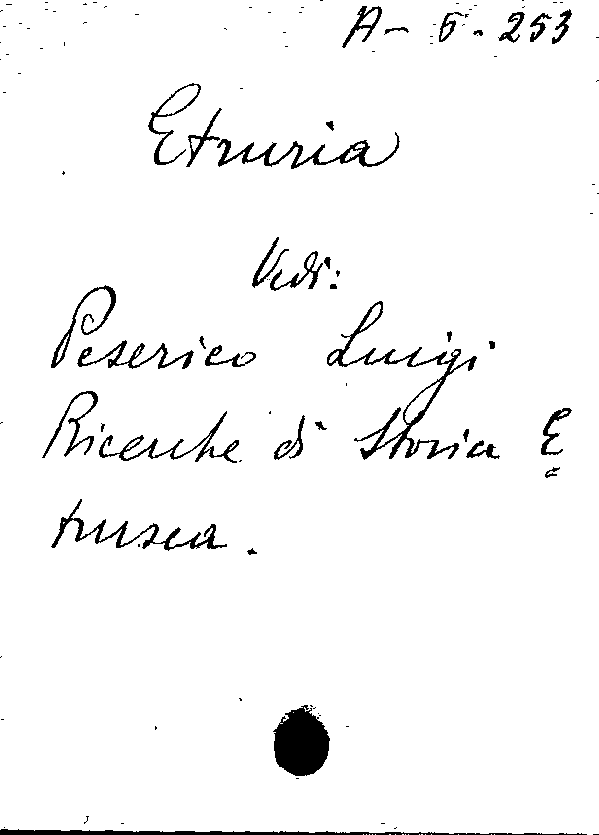 A - 5 - 253
Etruria
Vedi:
Peserico Luigi
Ricerche di Storia E
=
trusca.